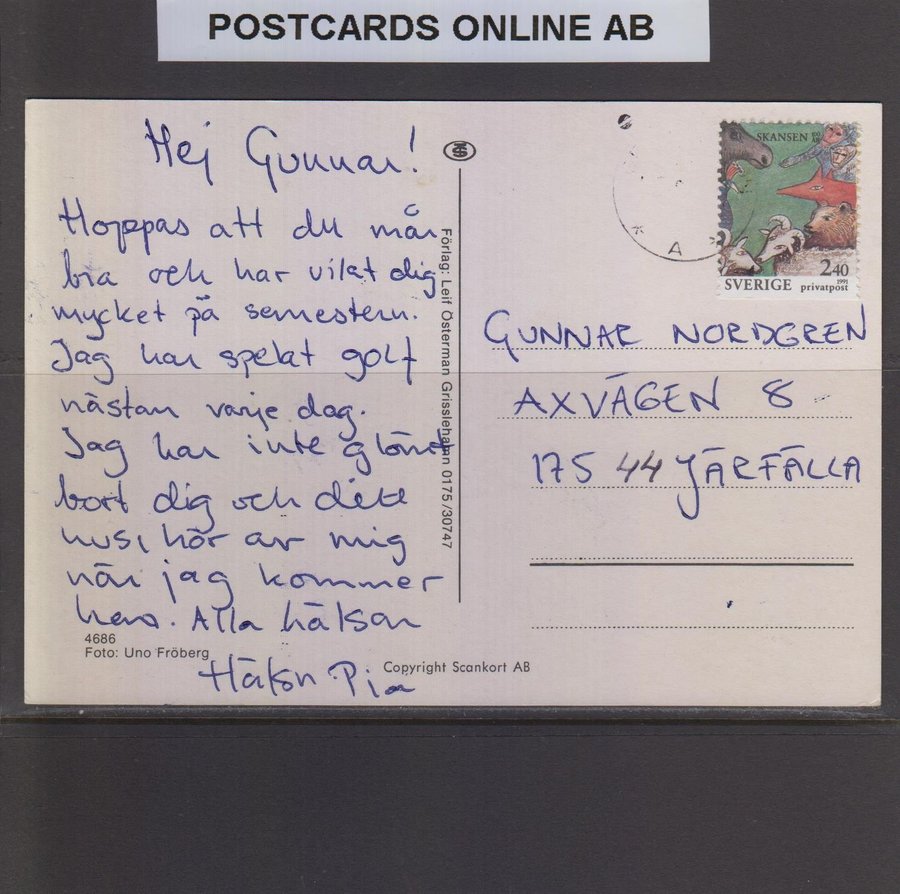 POSTCARDS ONLINE AB
Hej Gunnar!
Hoppas att du mår
bra och har vilat dig
mycket på semestern.
Jag har spelat golf
nästan varje dag.
Jag har inte glömt
bort dig och ditt
hus, hör av mig
när jag kommer
hem. Alla hälsar
Hälsn Pia
4686
Foto: Uno Fröberg
Copyright Scankort AB
Förlag: Leif Österman Grisslehamn 0175/30747
SKANSEN
2.40
SVERIGE 1991
privatpost
* A *
GUNNAR NORDGREN
AXVÄGEN 8
175 44 JÄRFÄLLA